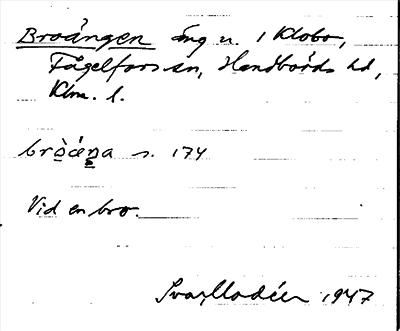 Broängen äng u. / Klobo,
Fågelfors sn, Handbörds hd,
Klm. l.
bròæ̀ŋa s. 174
Vid en bro.
Svar, 1947